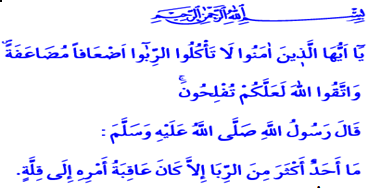 بِسْمِ اللهِ الرَّحْمٰنِ الرَّحِيمِ
يَٓا اَيُّهَا الَّذ۪ينَ اٰمَنُوا لَا تَأْكُلُوا الرِّبٰٓوا اَضْعَافاً مُضَاعَفَةًۖ
وَاتَّقُوا اللهَ لَعَلَّكُمْ تُفْلِحُونَۚ
قَالَ رَسُولُ اللَّهِ صَلَّى اللَّهُ عَلَيْهِ وَسَلَّمَ :
مَا أَحَدٌ أَكْثَرَ مِنَ الرِّبَا إِلاَّ كَانَ عَاقِبَةُ أَمْرِهِ إِلَى قِلَّةٍ.